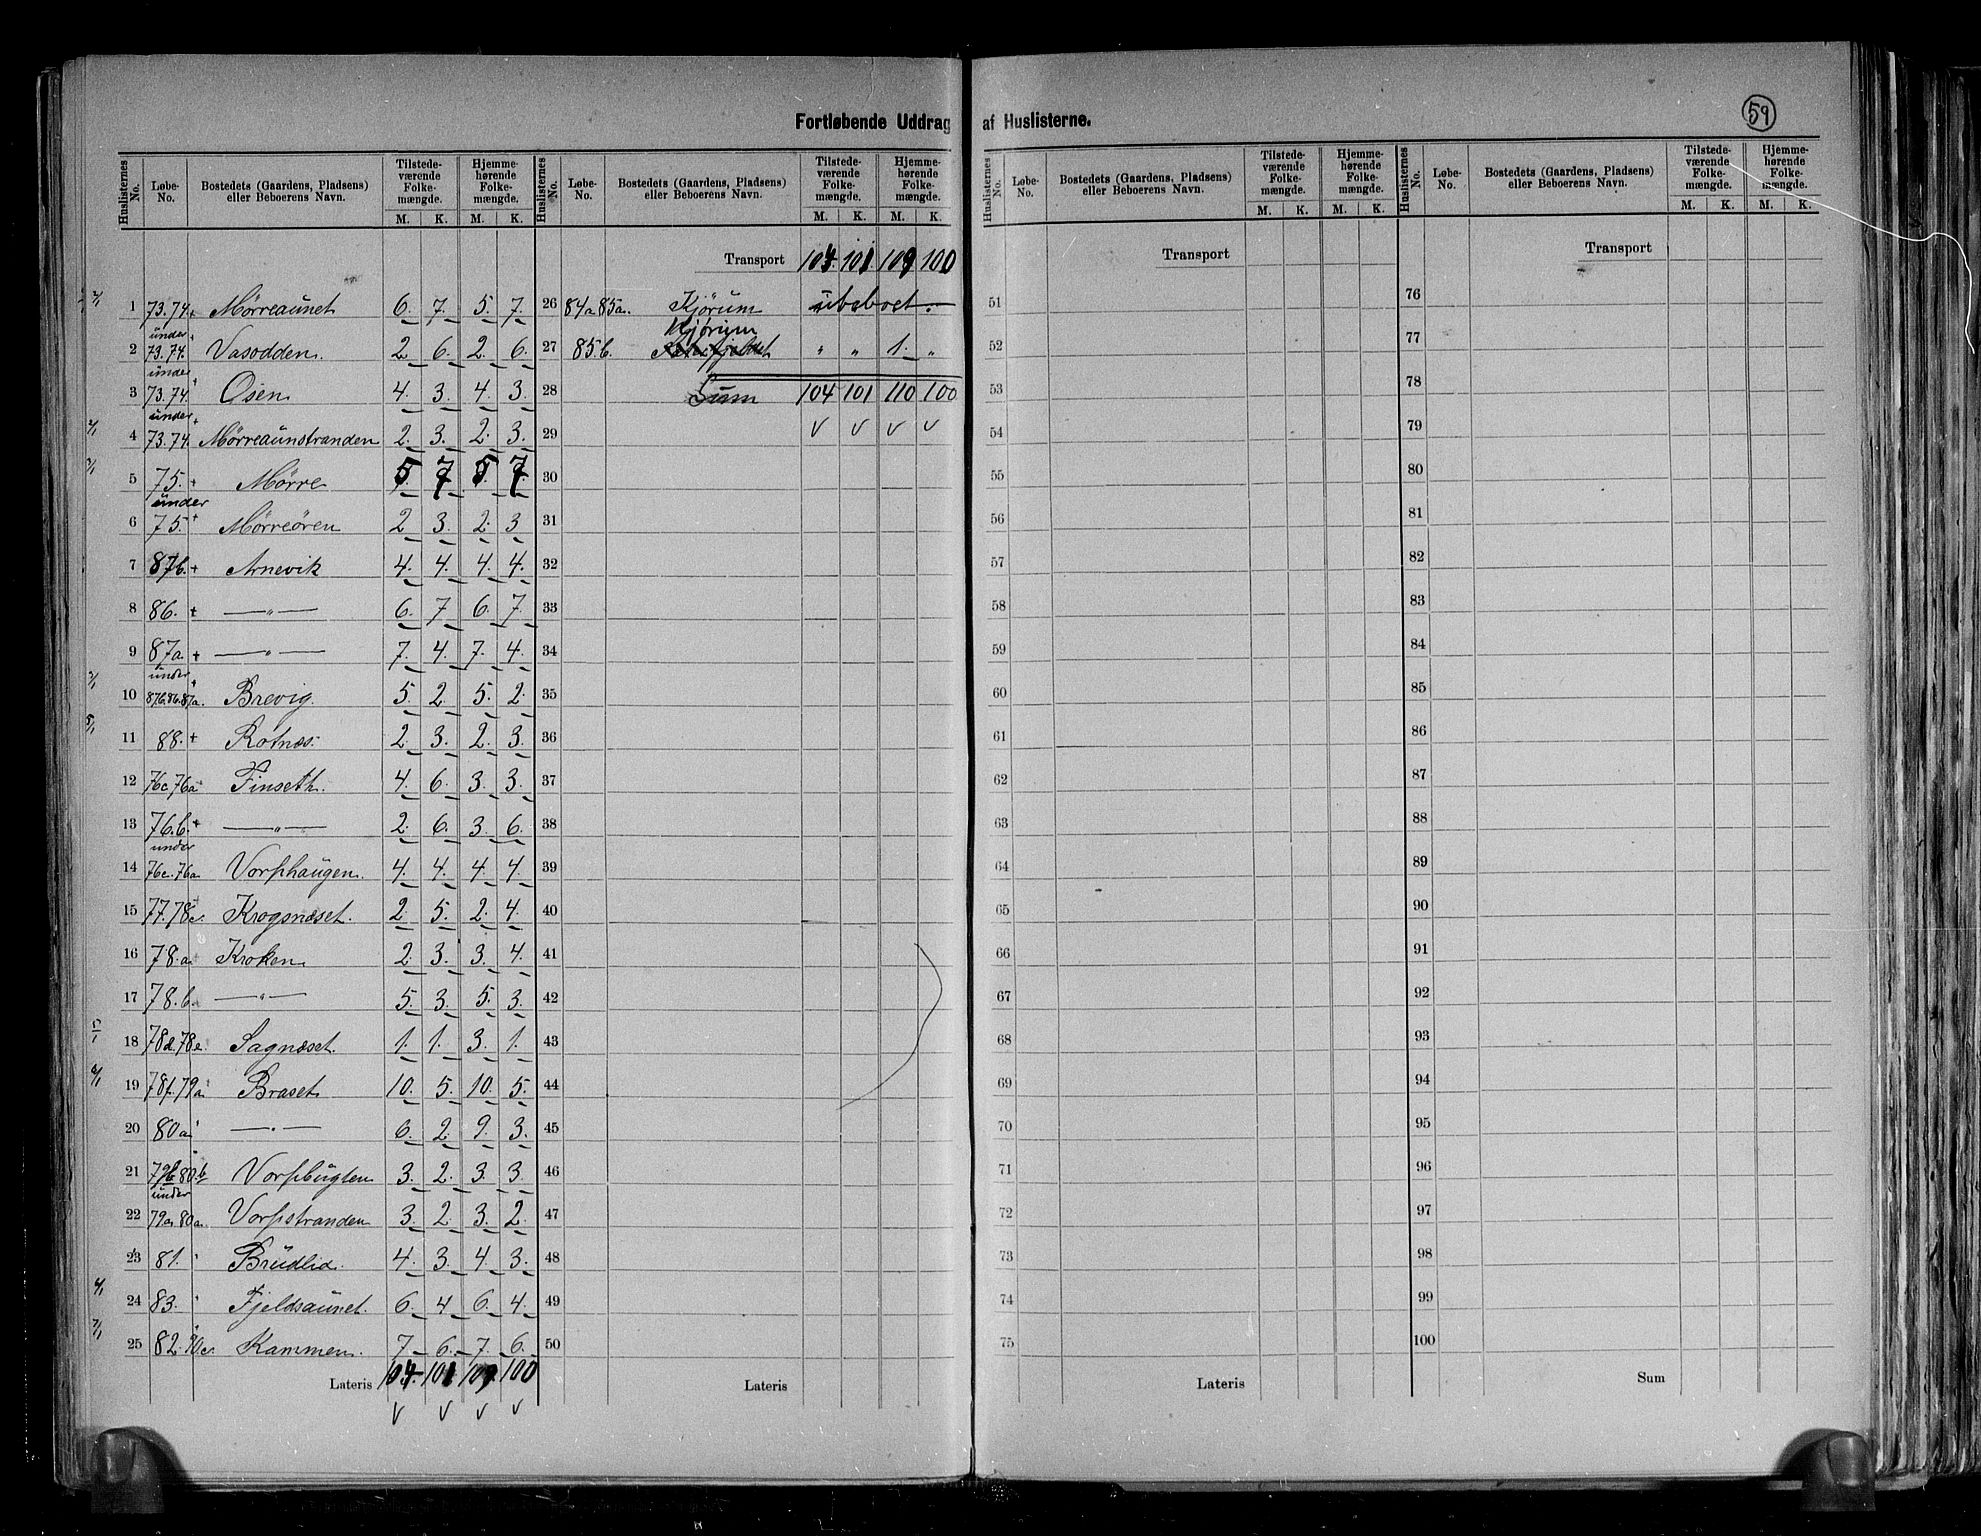 Fortløbende Uddrag af Huslisterne.
59
Huslisternes No. Løbe-No. Bostedets (Gaardens, Pladsens) eller Beboerens Navn. Tilstedeværende Folkemængde. M. K. Hjemmehørende Folkemængde. M. K.
1 73.74. Mørreaunet 6. 7. 5. 7.
2 under 73.74. Vasodden. 2. 6. 2. 6.
3 under 73.74. Osen 4. 3. 4. 3.
4 under 73.74. Mørreaunstranden 2. 3. 2. 3.
5 75. Mørre 5. 7. 5. 7.
6 under 75. Mørreören 2. 3. 2. 3.
7 87b. Arnevik 4. 4. 4. 4.
8 86. —"— 6. 7. 6. 7.
9 87a. —"— 7. 4. 7. 4.
10 under 87b.86.87a. Brevig. 5. 2. 5. 2.
11 88. Rotnæs. 2. 3. 2. 3.
12 76c.76a Finseth. 4. 6. 3. 3.
13 76.b. —"— 2. 6. 3. 6.
14 under 76c.76a Vorphaugen. 4. 4. 4. 4.
15 77.78c. Krogsnæset. 2. 5. 2. 4.
16 78.a Kroken 2. 3. 3. 4.
17 78.b. —"— 5. 3. 5. 3.
18 78d.78e. Sagnæset. 1. 1. 3. 1.
19 78f.79a Braset 10. 5. 10. 5.
20 80a —"— 6. 2. 9. 3.
21 79b.80.b Vorpbugten 3. 2. 3. 3.
22 under 79a.80a. Vorpstranden 3. 2. 3. 2.
23 81. Brudlid. 4. 3. 4. 3.
24 83. Fjeldsaunet. 6. 4. 6. 4.
25 82.90c. Kammen. 7. 6. 7. 6.
Lateris 104. 101 109. 100
Huslisternes No. Løbe-No. Bostedets (Gaardens, Pladsens) eller Beboerens Navn. Tilstedeværende Folkemængde. M. K. Hjemmehørende Folkemængde. M. K.
Transport 104. 101. 109 100
26 84a 85a. Kjørum ubeboet.
27 85b. Kjørum " " 1. "
28 Sum 104 101 110 100
29 v v v v
30
31
32
33
34
35
36
37
38
39
40
41
42
43
44
45
46
47
48
49
50
Lateris
Huslisternes No. Løbe-No. Bostedets (Gaardens, Pladsens) eller Beboerens Navn. Tilstedeværende Folkemængde. M. K. Hjemmehørende Folkemængde. M. K.
Transport
51
52
53
54
55
56
57
58
59
60
61
62
63
64
65
66
67
68
69
70
71
72
73
74
75
Lateris
Huslisternes No. Løbe-No. Bostedets (Gaardens, Pladsens) eller Beboerens Navn. Tilstedeværende Folkemængde. M. K. Hjemmehørende Folkemængde. M. K.
Transport
76
77
78
79
80
81
82
83
84
85
86
87
88
89
90
91
92
93
94
95
96
97
98
99
100
Sum